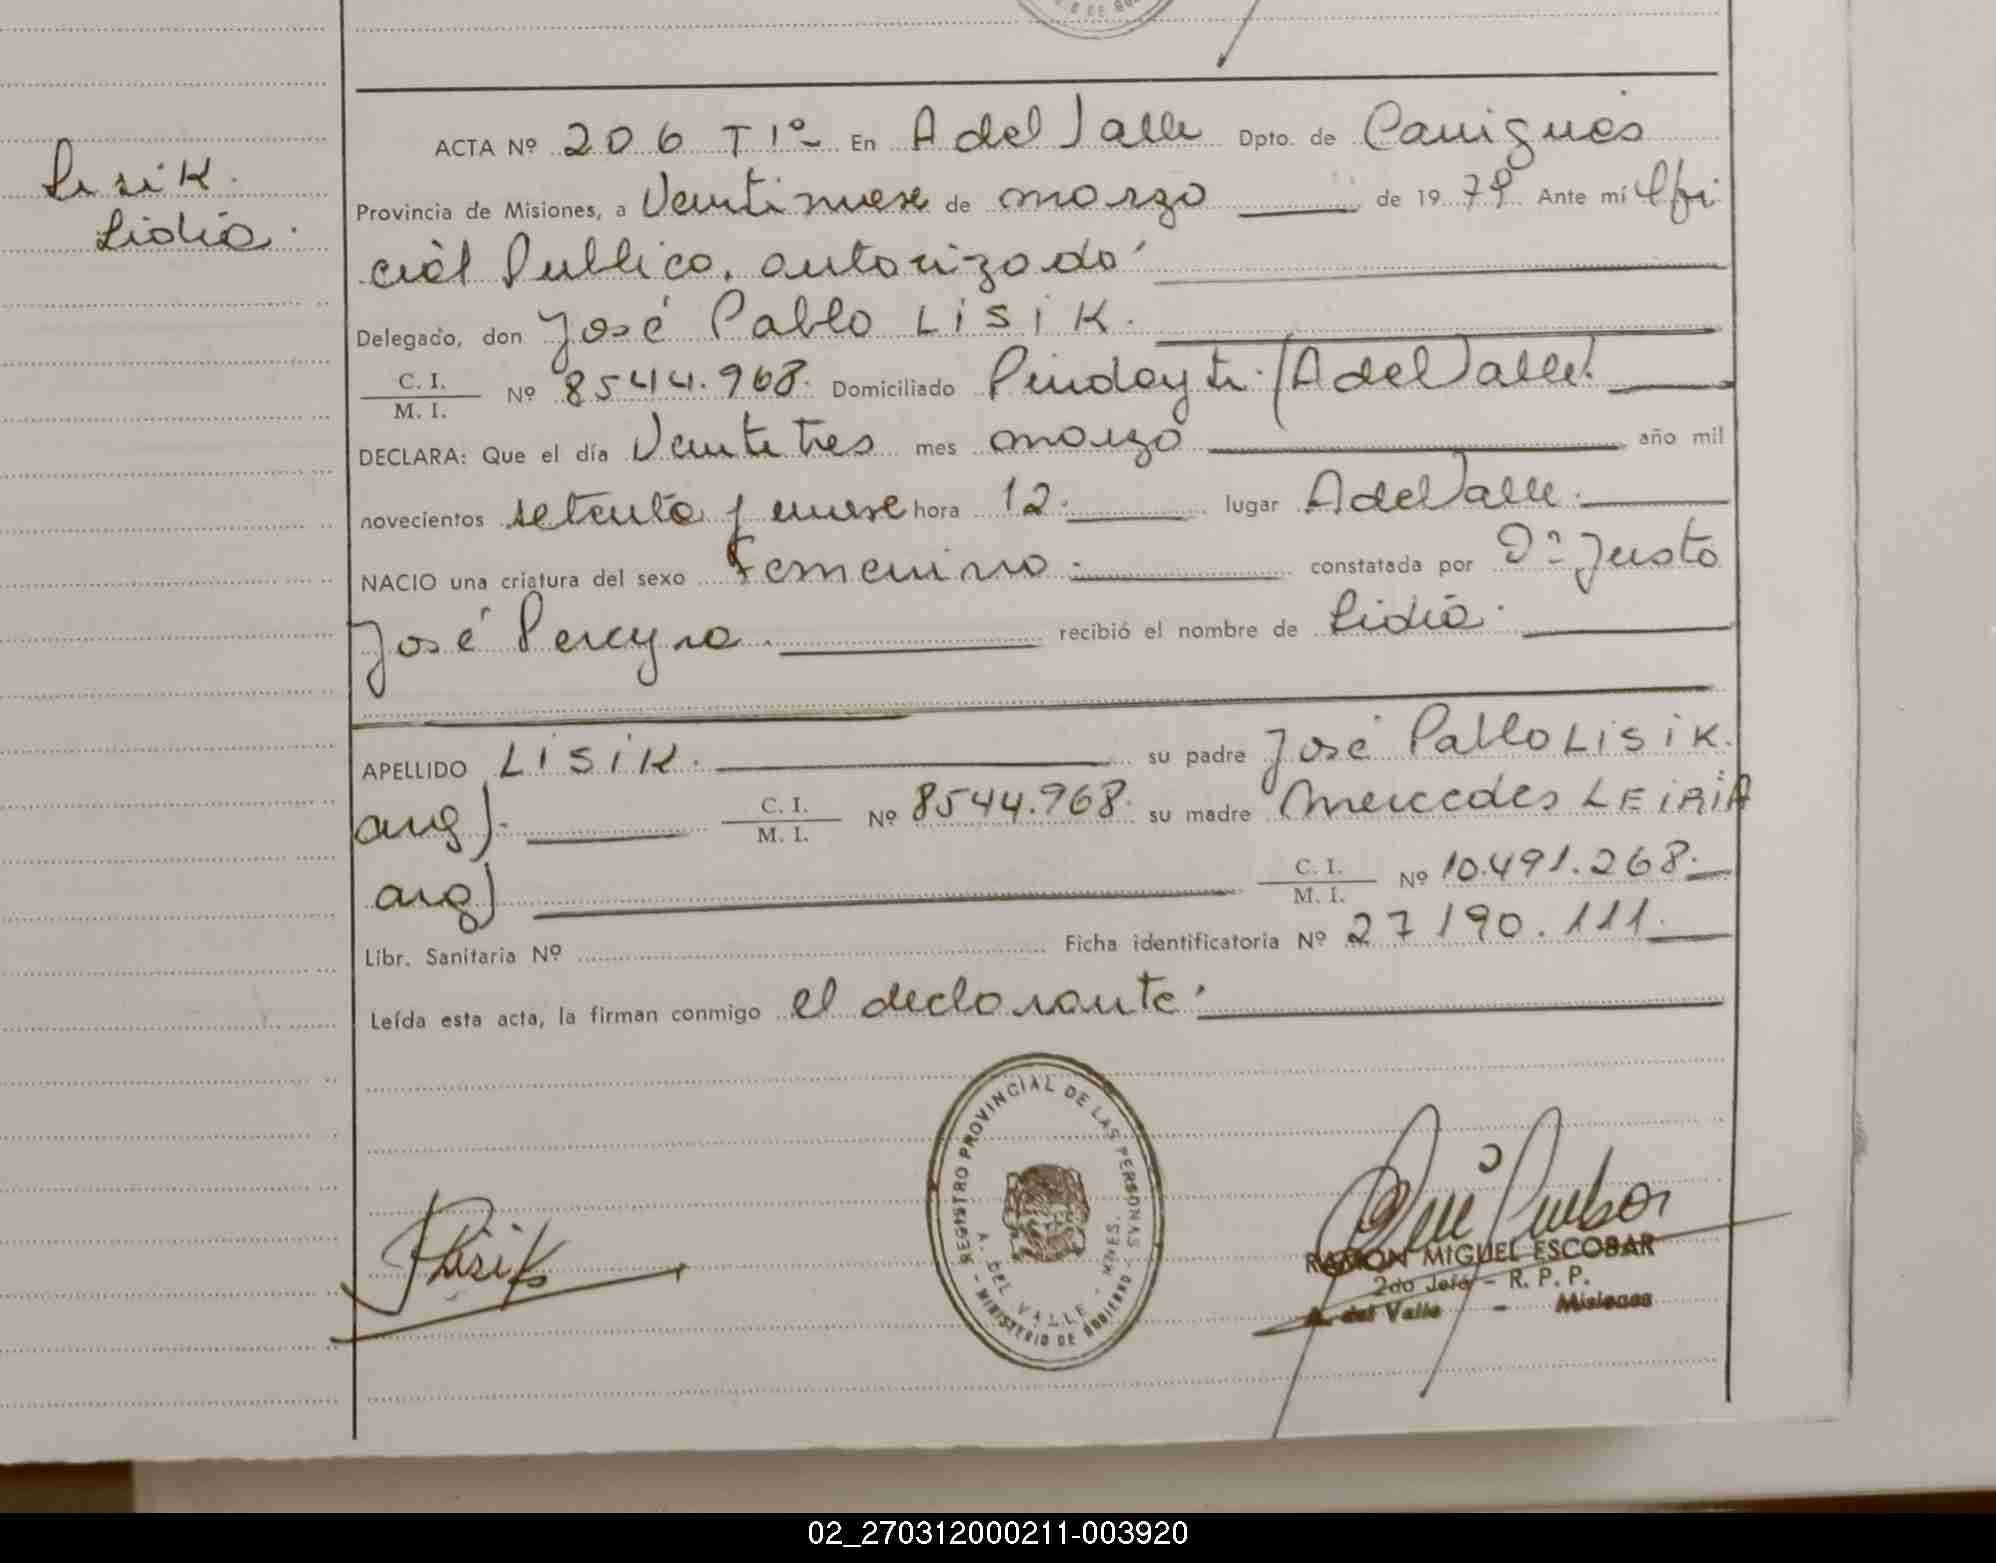 Lisik.
Lidia.
ACTA Nº 206 T 1º- En A del Valle Dpto. de Cainguás
Provincia de Misiones, a Veintinueve de marzo de 1979 Ante mí Ofi
cial Publico, autorizado
Delegado, don José Pablo LISIK.
C. I.
M. I. Nº 8544.968. Domiciliado Pindayti. (A del Valle).
DECLARA: Que el día Veintitres mes marzo año mil
novecientos setenta y nueve hora 12. lugar A del Valle.
NACIO una criatura del sexo Femenino. constatada por Dº Justo
José Pereyra. recibió el nombre de Lidia.
APELLIDO LISIK. su padre José Pablo LISIK.
arg). C. I.
M. I. Nº 8544.968. su madre Mercedes LEIRIA
arg) C. I.
M. I. Nº 10.491.268.
Libr. Sanitaria Nº Ficha identificatoria Nº 27190.111.
Leída esta acta, la firman conmigo el declarante.
REGISTRO PROVINCIAL DE LAS PERSONAS
A. DEL VALLE - MNES.
- MINISTERIO DE GOBIERNO -
Lisik
RAMON MIGUEL ESCOBAR
2do Jefe - R. P. P.
A. del Valle - Misiones
02_270312000211-003920